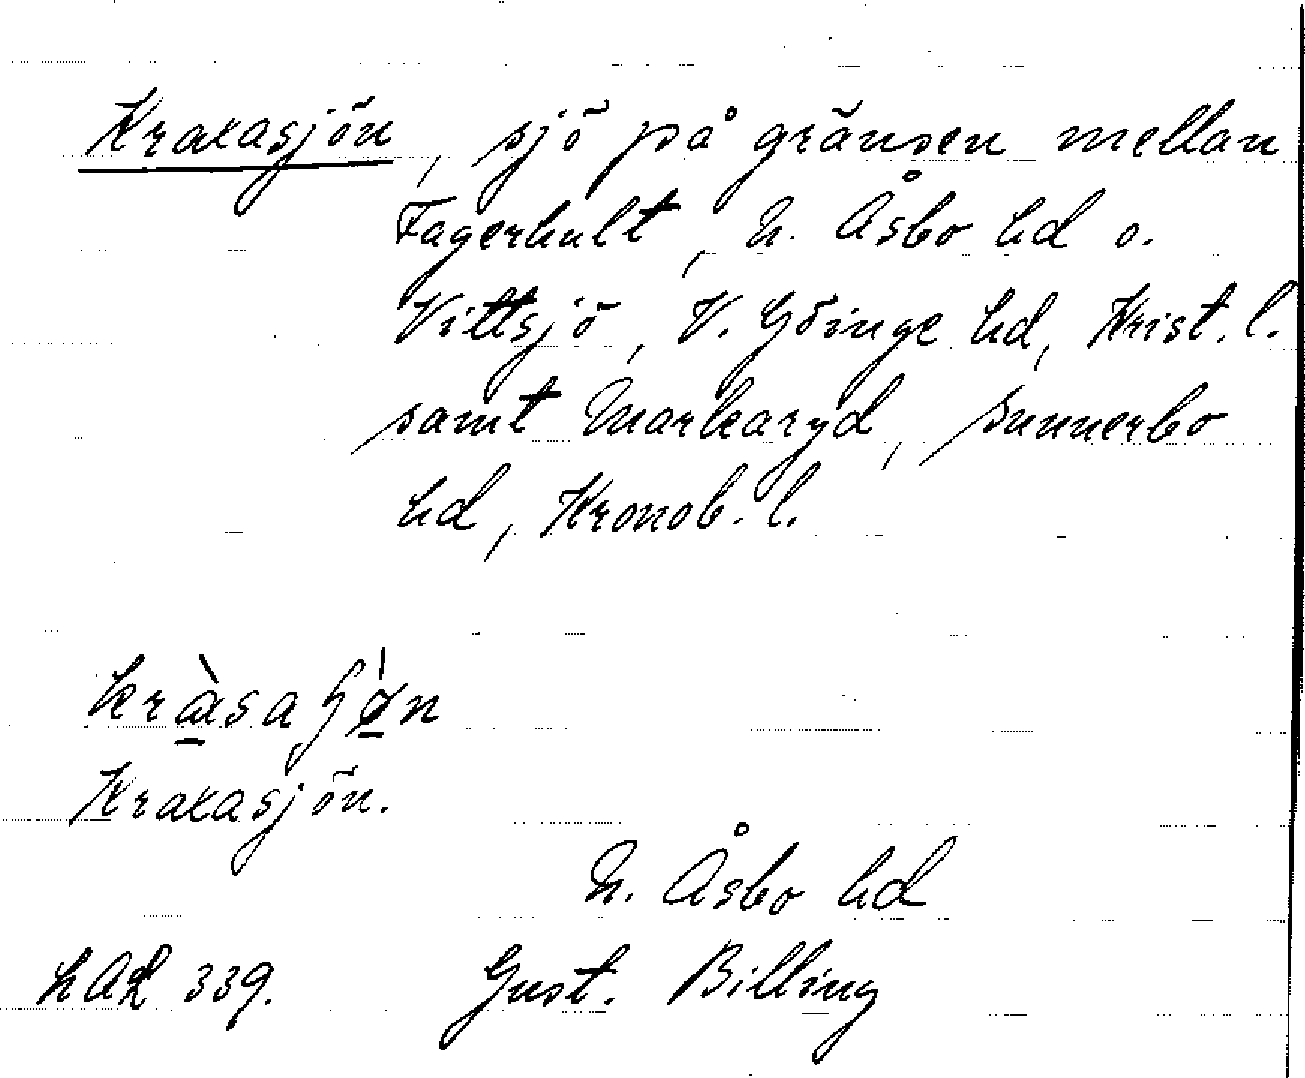 Kraxasjön, sjö på gränsen mellan
Fagerhult, N. Åsbo hd o.
Vittsjö, V. Göinge hd, Krist. l.
samt Markaryd, Sunnerbo
hd, Kronob. l.
Kraxasjön.
N. Åsbo hd
LAL 339. Gust. Billing